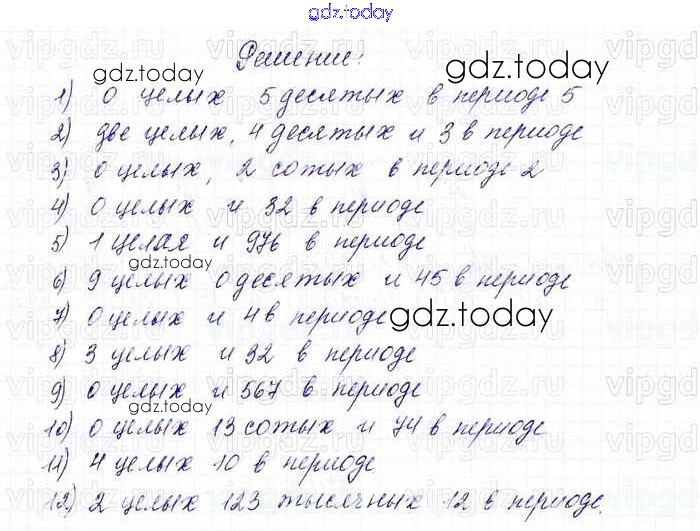 gdz.today
Решение:
1) 0 целых 5 десятых в периоде 5
2) две целых, 4 десятых и 3 в периоде
3) 0 целых, 2 сотых в периоде 2
4) 0 целых и 32 в периоде
5) 1 целая и 976 в периоде
6) 9 целых 0 десятых и 45 в периоде
7) 0 целых и 4 в периоде
8) 3 целых и 32 в периоде
9) 0 целых и 567 в периоде
10) 0 целых 13 сотых и 74 в периоде
11) 4 целых 10 в периоде
12) 2 целых 123 тысячных 12 в периоде.